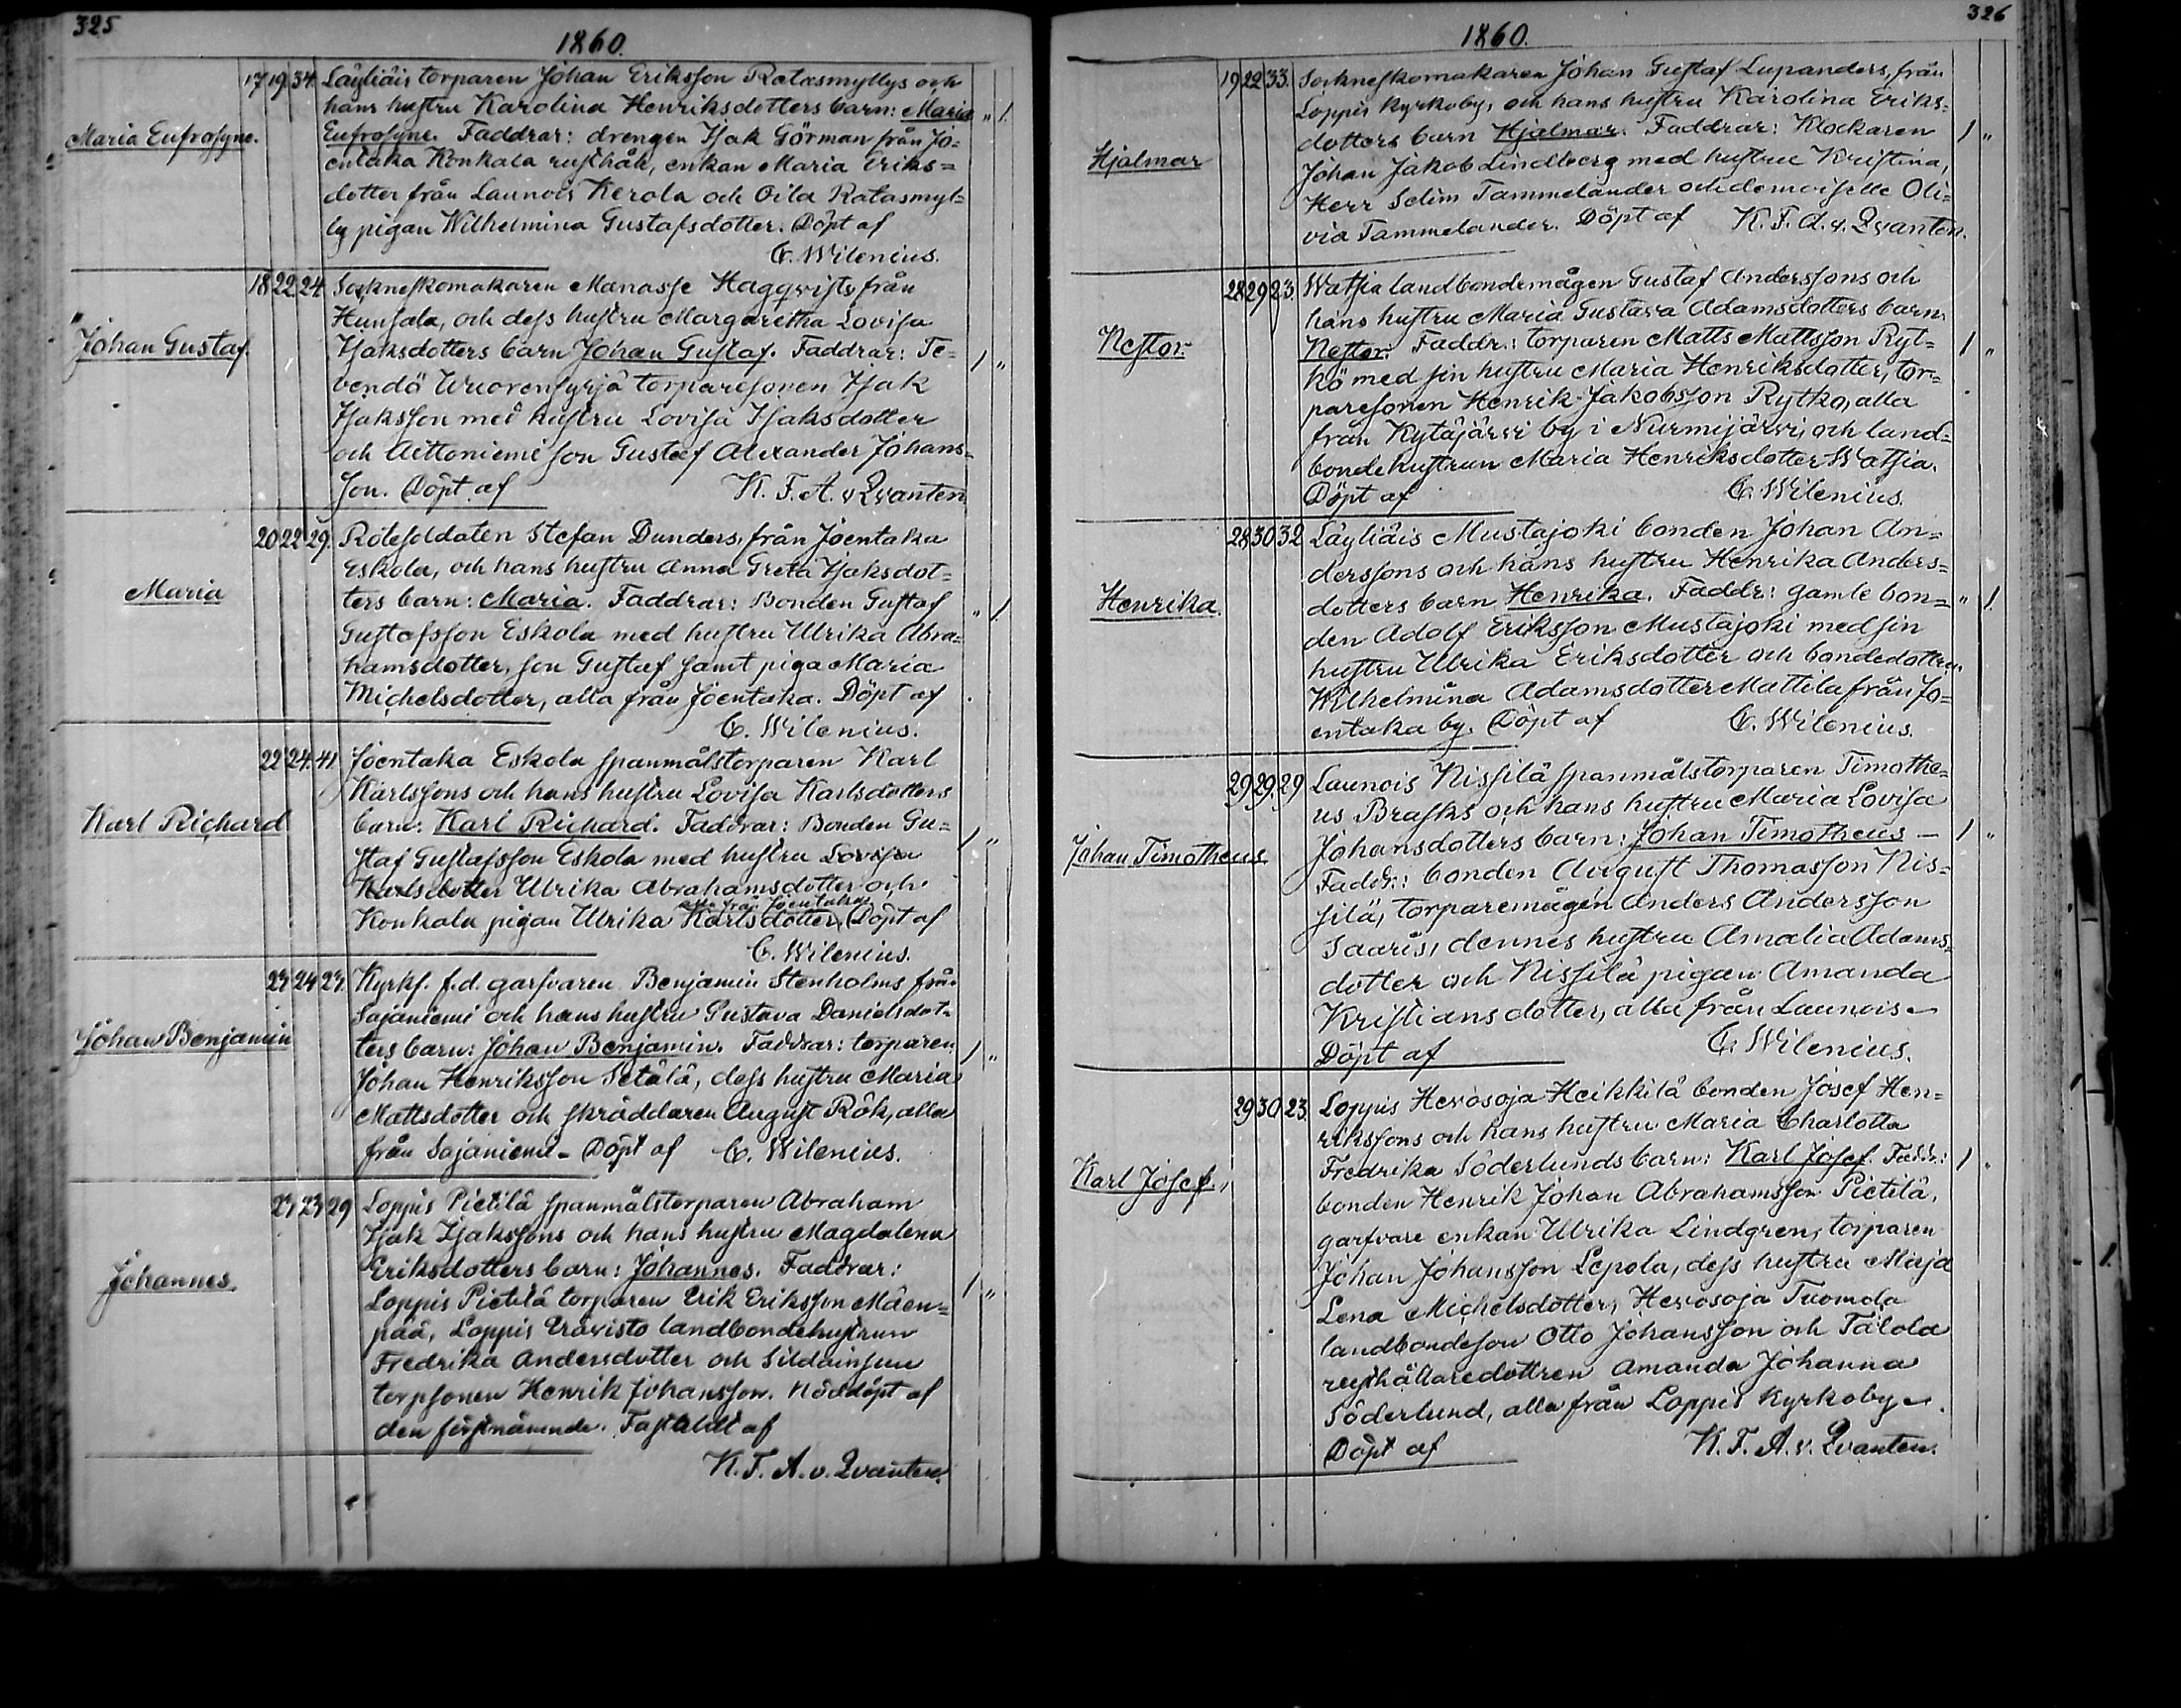 325
1860.
Maria Eufrosyne.
17 19 34. Läyliäis torparen Johan Eriksson Ratasmyllys och
hans hustru Karolina Henriksdotters barn: Maria " 1.
Eufrosyne. Faddrar: drengen Isak Görman från Jo=
entaka Konkala rusthåll, enkan Maria Eriks=
dotter från Launois Kerola och Oila Ratasmyl=
ly pigan Wilhelmina Gustafsdotter. Döpt af
C. Wilenius.
Johan Gustaf.
18 22 24 Sockneskomakaren Manasse Haggqvists från
Hunsala, och dess hustru Margaretha Lovisa
Isaksdotters barn Johan Gustaf. Faddrar: Te= 1 "
vendö Wuorensyrjä torparesonen Isak
Isaksson med hustru Lovisa Isaksdotter
och Aittoniemi son Gustaf Alexander Johans=
son. Döpt af K. F. A. v Qvanten
Maria
20 22 29. Rotesoldaten Stefan Dunders, från Joentaka
Eskola, och hans hustru Anna Greta Isaksdot=
ters barn: Maria. Faddrar: Bonden Gustaf " 1.
Gustafsson Eskola med hustru Ulrika Abra=
hamsdotter, son Gustaf samt piga Maria
Michelsdotter, alla från Joentaka. Döpt af
C. Wilenius.
Karl Richard
22 24. 41. Joentaka Eskola spanmålstorparen Karl
Karlssons och hans hustru Lovisa Karlsdotters
barn: Karl Richard. Faddrar: Bonden Gu= 1 "
staf Gustafsson Eskola med hustru Lovisa
Karlsdotter Ulrika Abrahamsdotter och
alla från Joentaka
Konkala pigan Ulrika Karlsdotter, Döpt af
C. Wilenius.
Johan Benjamin
23 24 23. Kyrks. f.d. garfvaren Benjamin Stenholms från
Sajaniemi och hans hustru Gustava Danielsdot=
ters barn: Johan Benjamin. Faddrar: torparen 1 "
Johan Henriksson Setälä, dess hustru Maria
Mattsdotter och skräddaren August Rök, alla
från Sajaniemi. Döpt af C. Wilenius.
Johannes.
23 23 29 Loppis Pietilä spanmålstorparen Abraham
Isak Isakssons och hans hustru Magdalena
Eriksdotters barn: Johannes. Faddrar:
Loppis Pietilä torparen Erik Eriksson Mäen= 1 "
pää, Loppis Erävisto landbondehustrun
Fredrika Andersdotter och
torpsonen Henrik Johansson. Nöddöpt af
den förstnämnde. Faststäldt af
K. F. A. v. Qvanten.
326
1860.
Hjalmar
19 22 33. Sockneskomakaren Johan Gustaf Lupanders, från
Loppis Kyrkoby, och hans hustru Karolina Eriks=
dotters barn Hjalmar. Faddrar: Klockaren 1 "
Johan Jakob Lindberg med hustru Kristina,
Herr Selim Tammelander och demoiselle Oli=
via Tammelander. Döpt af K. F. A. v. Qvanten.
Nestor.
28 29 23. Watsia landbondemågen Gustaf Anderssons och
hans hustru Maria Gustava Adamsdotters barn.
Nestor. Faddr.: torparen Matts Mattsson Ryt= 1 "
kö med sin hustru Maria Henriksdotter, tor=
paresonen Henrik Jakobsson Rytko, alla
från Kytäjärvi by i Nurmijärvi, och land=
bondehustrun Maria Henriksdotter Watsia.
Döpt af C. Wilenius.
Henrika.
28 30 32 Läyliäis Mustajoki bonden Johan An=
derssons och hans hustru Henrika Anders=
dotters barn Henrika. Faddr: gamle bon= " 1.
den Adolf Eriksson Mustajoki med sin
hustru Ulrika Eriksdotter och bondedottren
Wilhelmina Adamsdotter Mattila från Jo=
entaka by. Döpt af C. Wilenius.
Johan Timotheus
29 29. 29 Launois Nissilä spanmålstorparen Timothe=
us Brasks och hans hustru Maria Lovisa
Johansdotters barn: Johan Timotheus – 1 "
Faddr.: bonden August Thomasson Nis=
silä, torparemågen Anders Andersson
Saaris, dennes hustru Amalia Adams=
dotter och Nissilä pigan Amanda
Kristiansdotter, alla från Launois.
Döpt af C. Wilenius.
Karl Josef.
29 30 23. Loppis Hevosoja Heikkilä bonden Josef Hen=
rikssons och hans hustru Maria Charlotta
Fredrika Söderlunds barn: Karl Josef. Faddr.: 1 "
bonden Henrik Johan Abrahamsson Pietilä,
garfvare enkan Ulrika Lindgren, torparen
Johan Johansson Lepola, dess hustru Maja
Lena Michelsdotter, Hevosoja Tuomola
landbondeson Otto Johansson och Talola
rusthållaredottren Amanda Johanna
Söderlund, alla från Loppis Kyrkoby.
Döpt af K. F. A. v. Qvanten.